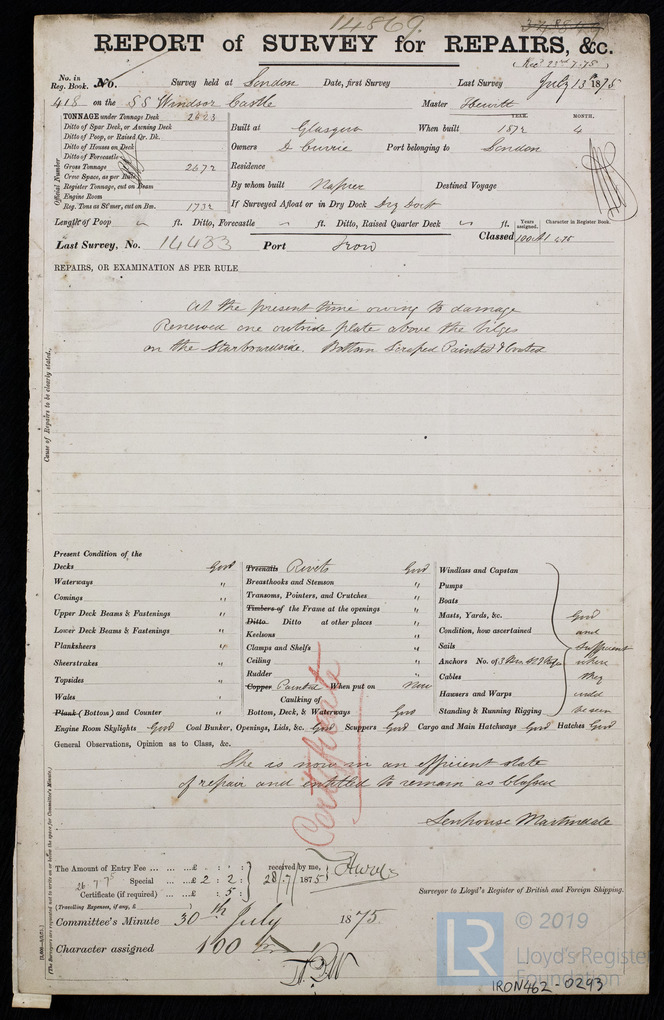 14869
REPORT of SURVEY for REPAIRS, &c.
(Recd 23rd 7.75)
No. in Reg. Book. No. Survey held at London Date, first Survey Last Survey July 13th 1875
418 on the SS Windsor Castle Master Hewitt
TONNAGE under Tonnage Deck 2623
Ditto of Spar Deck, or Awning Deck
Ditto of Poop, or Raised Qr. Dk.
Ditto of Houses on Deck
Ditto of Forecastle
Gross Tonnage 2672
Crew Space, as per Rule
Register Tonnage, cut on Beam
Engine Room
Reg. Tons as St'mer, cut on Bm. 1732
Official Number
YEAR. MONTH.
Built at Glasgow When built 1872 4
Owners D Currie Port belonging to London
Residence
By whom built Napier Destined Voyage
If Surveyed Afloat or in Dry Dock Dry Dock
Length of Poop ft. Ditto, Forecastle ft. Ditto, Raised Quarter Deck ft.
Years assigned. Character in Register Book.
Last Survey, No. 14433 Port Iron Classed 100A1 4.75
REPAIRS, OR EXAMINATION AS PER RULE
Cause of Repairs to be clearly stated.
At the present time owing to damage
Renewed one outside plate above the bilge
on the Starboardside. Bottom Scraped Painted & Coated
Present Condition of the
Decks Good
Waterways "
Comings "
Upper Deck Beams & Fastenings "
Lower Deck Beams & Fastenings "
Planksheers "
Sheerstrakes "
Topsides "
Wales "
Plank (Bottom) and Counter "
Treenails Rivets Good
Breasthooks and Stemson "
Transoms, Pointers, and Crutches "
Timbers of the Frame at the openings "
Ditto Ditto at other places "
Keelsons "
Clamps and Shelfs "
Ceiling "
Rudder "
Copper Painted When put on Now
Caulking of
Bottom, Deck, & Waterways Good
Windlass and Capstan
Pumps
Boats
Masts, Yards, &c.
Condition, how ascertained
Sails
Anchors No. of
Cables
Hausers and Warps
Standing & Running Rigging
Good
and
Sufficient
where
they
could
be seen
Engine Room Skylights Good Coal Bunker, Openings, Lids, &c. Good Scuppers Good Cargo and Main Hatchways Good Hatches Good
General Observations, Opinion as to Class, &c.
She is now in an efficient state
of repair and entitled to remain as Classed
Certificate
Senhouse Martindale
Surveyor to Lloyd's Register of British and Foreign Shipping.
The Amount of Entry Fee ... ... ...£ : :
26.7.75 Special ... ...£ 2 : 2 :
Certificate (if required) ... ...£ : 5 :
(Travelling Expenses, if any, £
received by me,
28/7/1875
Committee's Minute 30th July 1875
Character assigned 100 A 1
(The Surveyors are requested not to write on or below the space for Committee's Minute.)
© 2019
LR
Lloyd's Register
Foundation
IRON462-0293